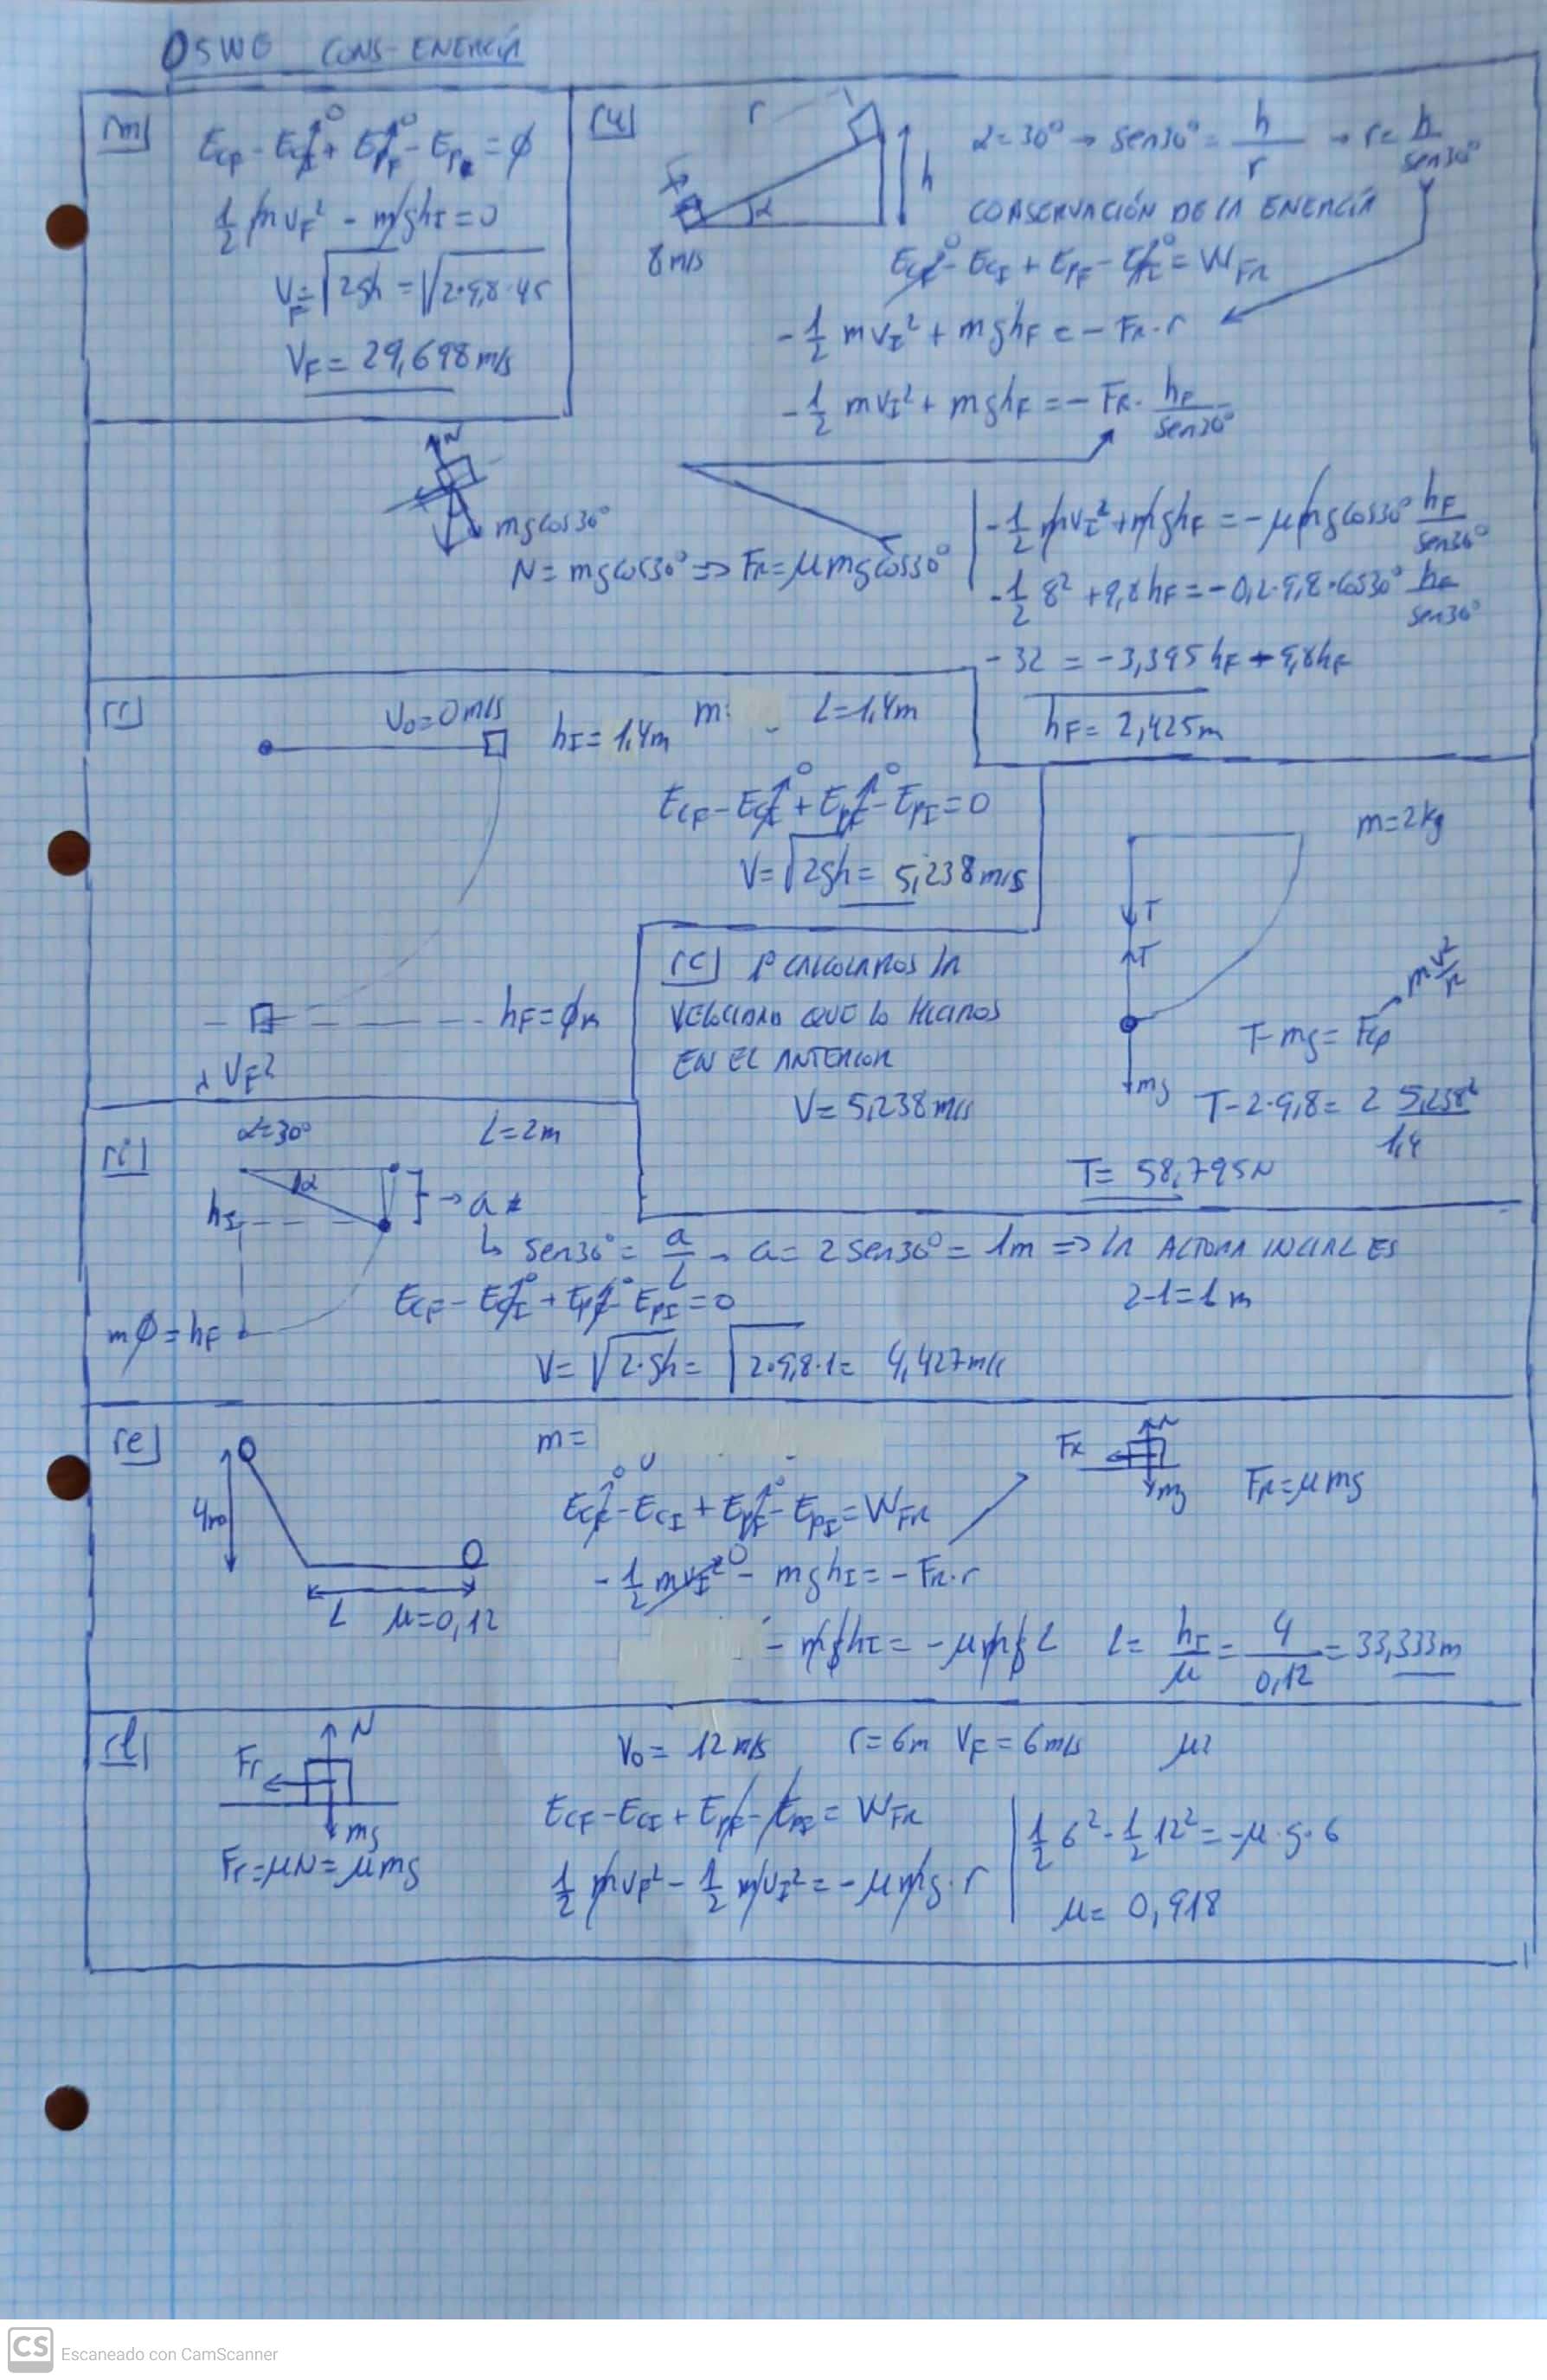 OSWG CONS-ENERGÍA
[m]
E_CF - E_CI↗0 + E_PF↗0 - E_PI = ϕ
1/2 m v_F² - m g h_I = 0
V_F = √2gh = √2·9,8·45
V_F = 29,698 m/s
[u]
r
h
α
8 m/s
α = 30° → sen30° = h/r → r = h/sen30°
CONSERVACIÓN DE LA ENERGÍA
E_CF↗0 - E_CI + E_PF - E_PI↗0 = W_FR
-1/2 m v_I² + m g h_F = - F_R · r
-1/2 m v_I² + m g h_F = - F_R · h_F/sen30°
N
mg cos30°
N = mg cos30° => F_R = μ mg cos30°
-1/2 m v_I² + m g h_F = - μ m g cos30° h_F/sen30°
-1/2 8² + 9,8 h_F = - 0,2 · 9,8 · cos30° h_F/sen30°
-32 = -3,395 h_F + 9,8 h_F
h_F = 2,425 m
V_0 = 0 m/s
h_I = 1,4 m
m:
L = 1,4 m
E_CF - E_CI↗0 + E_PF↗0 - E_PI = 0
V = √2gh = 5,238 m/s
h_F = ϕ m
V_F?
[rc] 1º CALCULAMOS LA
VELOCIDAD QUE LO HICIMOS
EN EL ANTERIOR
V = 5,238 m/s
m = 2 kg
T
T
mg
T - mg = F_cp
m v²/r
T - 2·9,8 = 2 5,238²/1,4
T = 58,795 N
[ri]
α = 30°
L = 2 m
α
h_I
→ a
sen30° = a/L → a = 2 sen30° = 1 m => LA ALTURA INICIAL ES
2-1 = 1 m
E_CF - E_CI↗0 + E_PF↗0 - E_PI = 0
m ϕ = h_F
V = √2·gh = √2·9,8·1 = 4,427 m/s
[re]
4m
L
μ = 0,12
m =
E_CF↗0 - E_CI + E_PF↗0 - E_PI = W_FR
-1/2 m v_I²↗0 - m g h_I = - F_R · r
F_R
N
mg
F_R = μ mg
- m g h_I = - μ m g L
L = h_I/μ = 4/0,12 = 33,333 m
[rl]
N
Fr
mg
Fr = μN = μ mg
V_0 = 12 m/s r = 6 m V_F = 6 m/s μ?
E_CF - E_CI + E_PF - E_PI = W_FR
1/2 m v_F² - 1/2 m v_I² = - μ m g · r
1/2 6² - 1/2 12² = - μ · g · 6
μ = 0,918
CS Escaneado con CamScanner